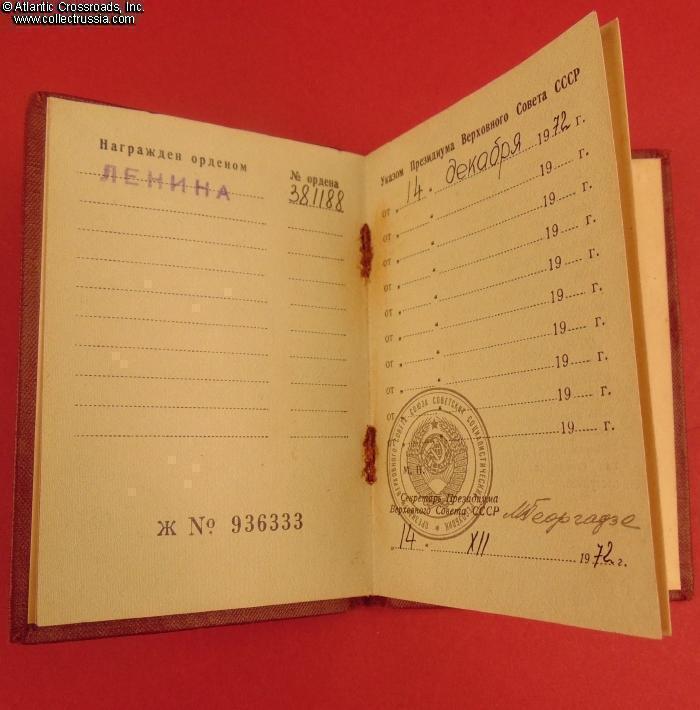 © Atlantic Crossroads, Inc.
www.collectrussia.com
Награжден орденом
№ ордена
ЛЕНИНА
381188
Ж № 936333
Указом Президиума Верховного Совета СССР
от „ 14 " декабря 1972 г.
от „ " 19 г.
от „ " 19 г.
от „ " 19 г.
от „ " 19 г.
от „ " 19 г.
от „ " 19 г.
от „ " 19 г.
от „ " 19 г.
от „ " 19 г.
М. П.
Секретарь Президиума
Верховного Совета СССР
МГеоргадзе
„ 14 " XII 1972 г.